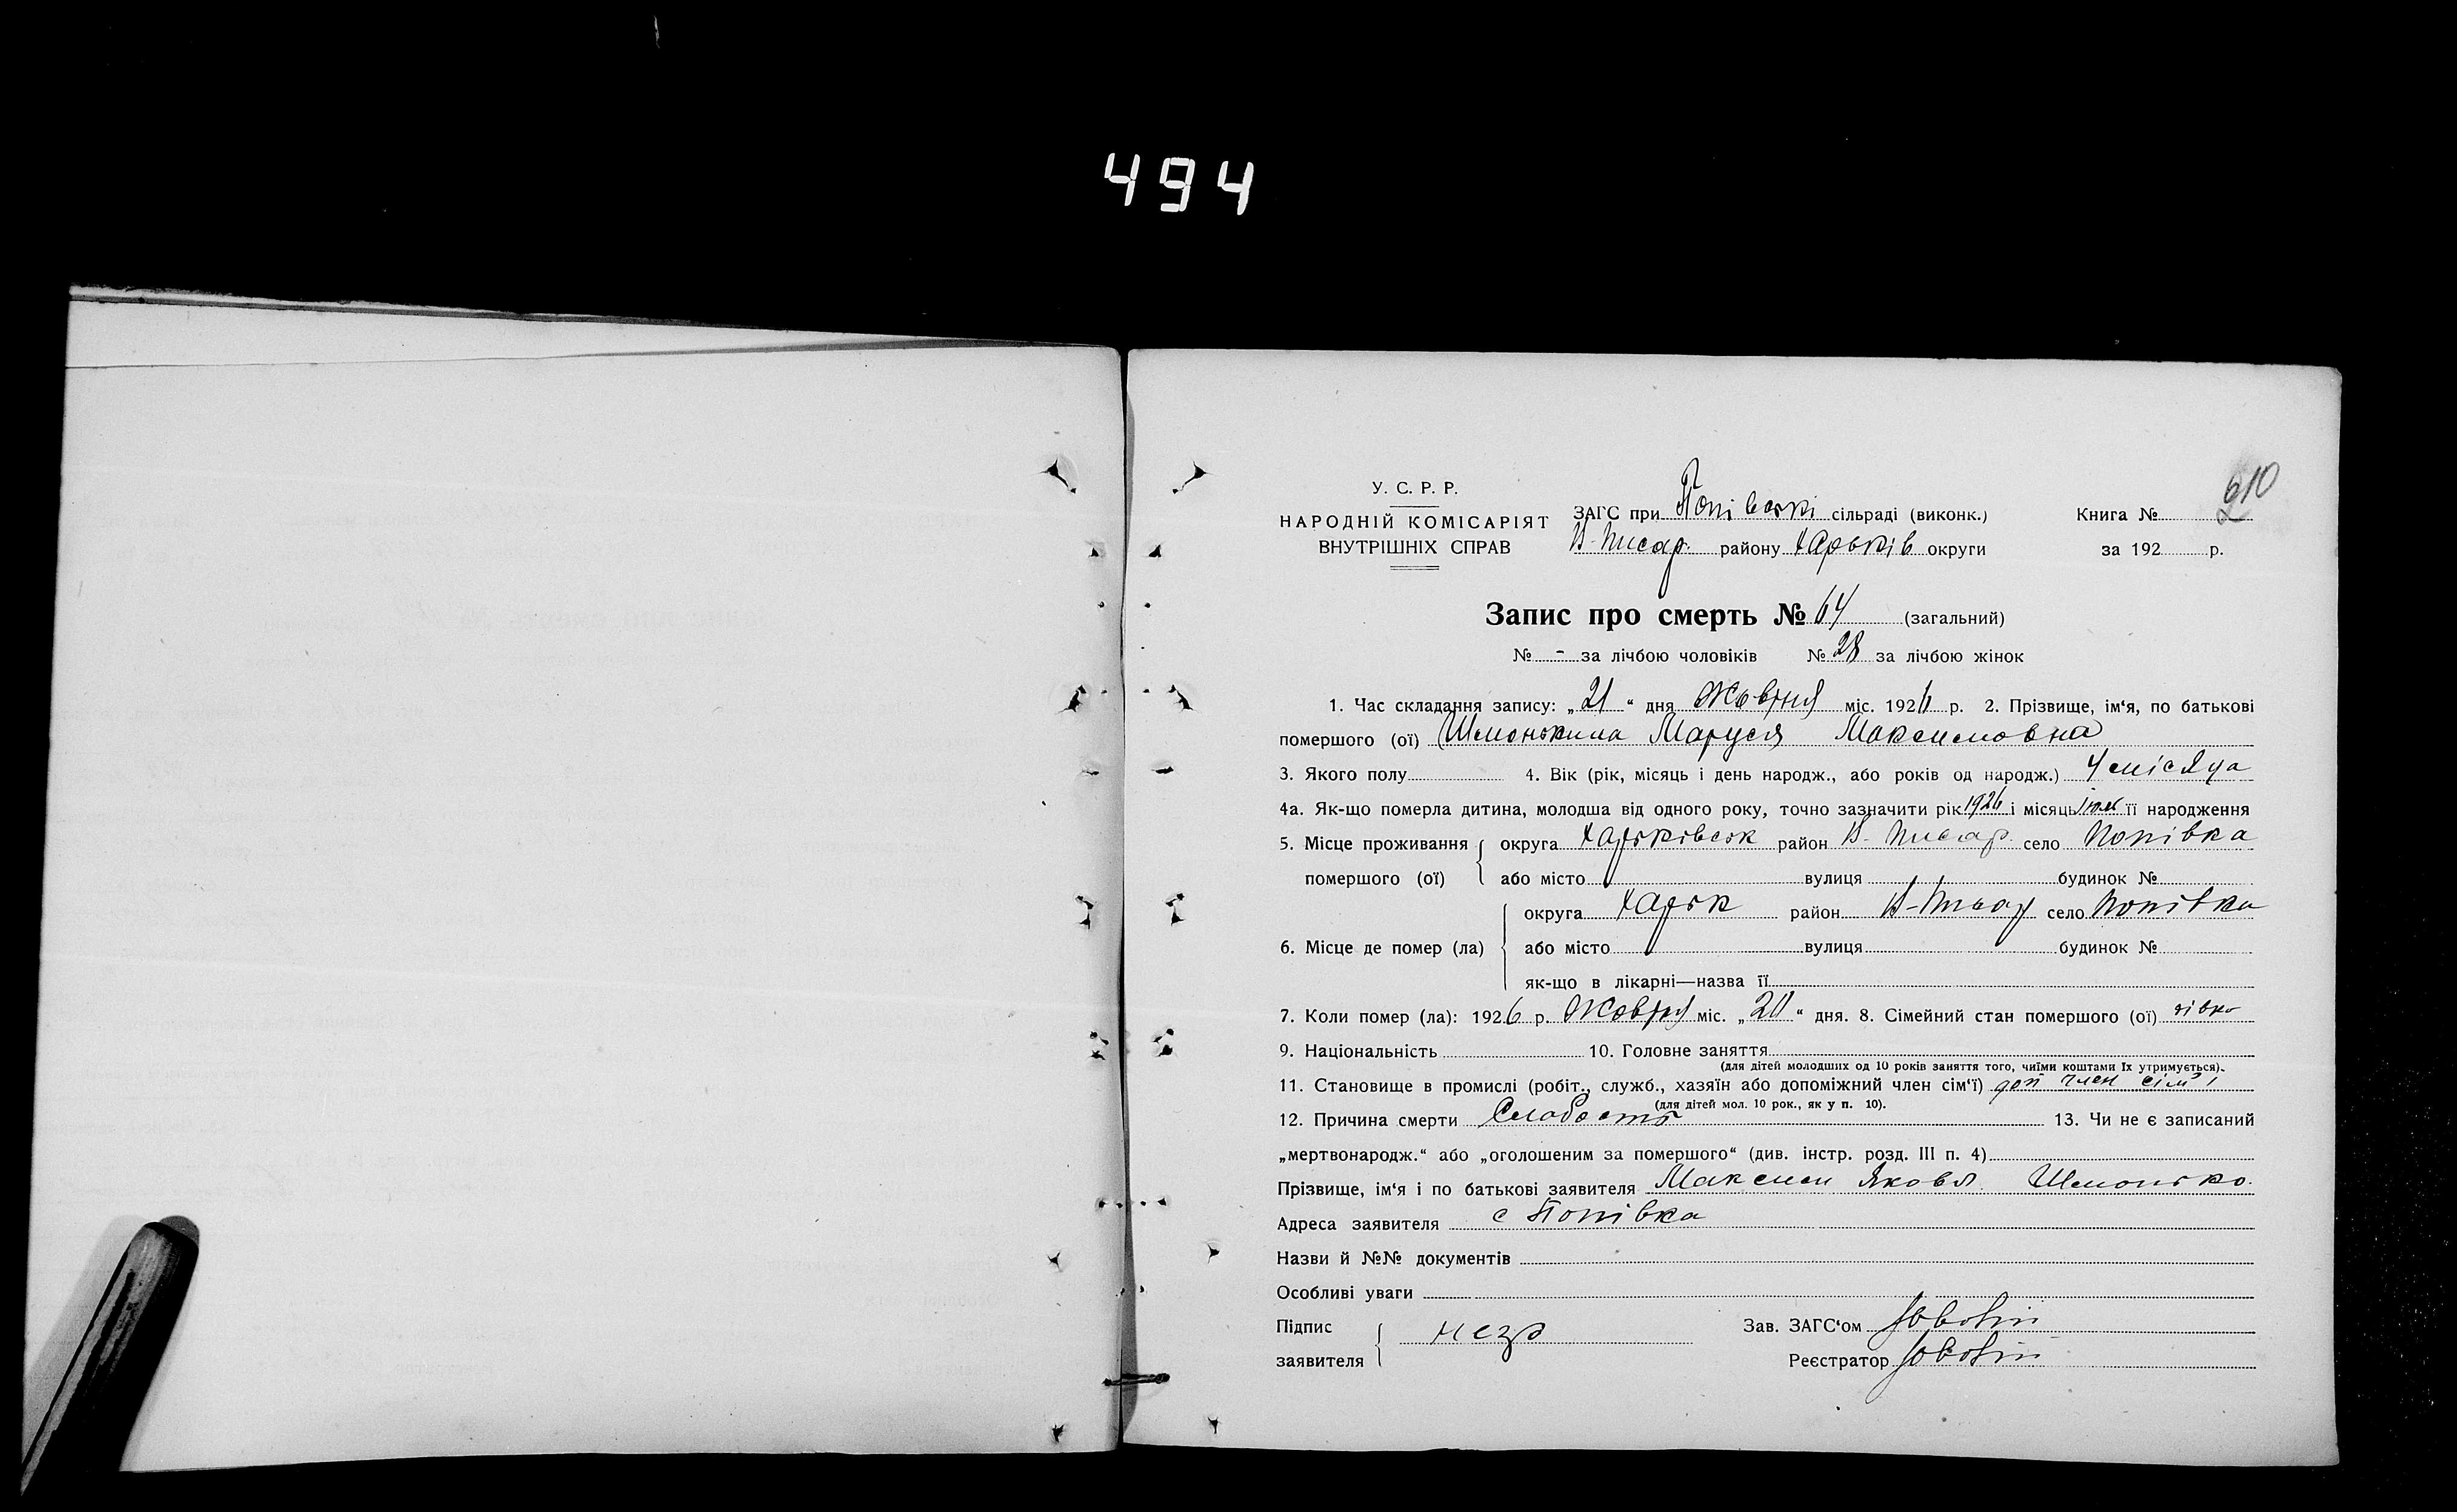 494
610
У. С. Р. Р.
НАРОДНІЙ КОМІСАРІЯТ
ВНУТРІШНІХ СПРАВ
ЗАГС при Попівські сільраді (виконк.)
В-Писар. району Харьків округи
Книга №
за 192 р.
Запис про смерть № 64 (загальний)
№ - за лічбою чоловіків № 28 за лічбою жінок
1. Час складання запису: „21“ дня Жовтня міс. 1926 р. 2. Прізвище, ім‘я, по батькові
помершого (ої) Маруся Максимовна
3. Якого полу 4. Вік (рік, місяць і день народж., або років од народж.) 4 місяця
4а. Як-що померла дитина, молодша від одного року, точно зазначити рік 1926 і місяць її народження
5. Місце проживання округа Харьківськ район В-Писар. село Попівка
помершого (ої) або місто вулиця будинок №
округа Харьк район В-Писар село Попівка
6. Місце де помер (ла) або місто вулиця будинок №
як-що в лікарні—назва її
7. Коли помер (ла): 1926 р. Жовтня міс. „20“ дня. 8. Сімейний стан помершого (ої)
9. Національність 10. Головне заняття
(для дітей молодших од 10 років заняття того, чиїми коштами їх утримується).
11. Становище в промислі (робіт., служб., хазяїн або допоміжний член сім‘ї) доп член сім'ї
(для дітей мол. 10 рок., як у п. 10).
12. Причина смерти Слабость 13. Чи не є записаний
„мертвонародж.“ або „оголошеним за помершого“ (див. інстр. розд. III п. 4)
Прізвище, ім‘я і по батькові заявителя Максим Яковл.
Адреса заявителя с Попівка
Назви й №№ документів
Особливі уваги
Підпис
заявителя
Зав. ЗАГС‘ом
Реєстратор